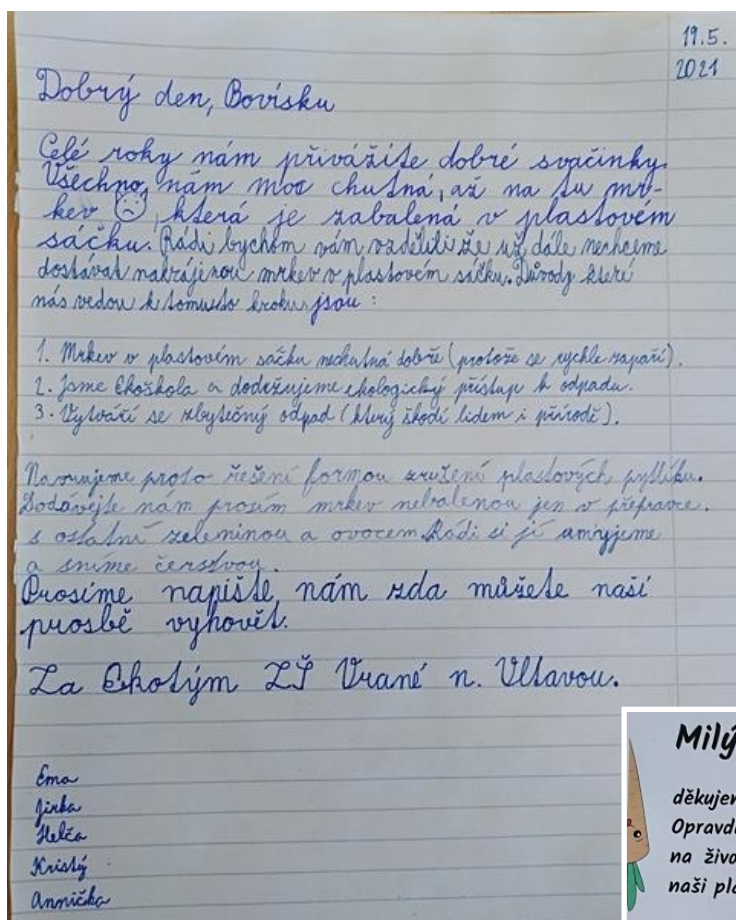 19.5.
2021
Dobrý den, Bovísku
Celé roky nám přivážíte dobré svačinky.
Všechno nám moc chutná, až na tu mr-
kev ☹, která je zabalená v plastovém
sáčku. Rádi bychom vám vzdělili že už dále nechceme
dostávat nakrájenou mrkev v plastovém sáčku. Důvody které
nás vedou k tomusto kroku jsou :
1. Mrkev v plastovém sáčku nechutná dobře (protože se rychle zapaří).
2. Jsme Ekoškola a dodržujeme ekologický přístup k odpadu.
3. Vytváří se zbytečný odpad (který škodí lidem i přírodě).
Navrhujeme proto řešení formou zrušení plastových pytlíku.
Dodávejte nám prosím mrkev nebalenou jen v přepravce.
s ostatní zeleninou a ovocem. Rádi si jí umyjeme
a sníme čerstvou.
Prosíme napište nám zda můžete naší
prosbě vyhovět.
Za Ekotým ZŠ Vrané n. Vltavou.
Ema
Jirka
Helča
Kristý
Annička
Milý
děkujem
Opravdi
na živo
naši pla